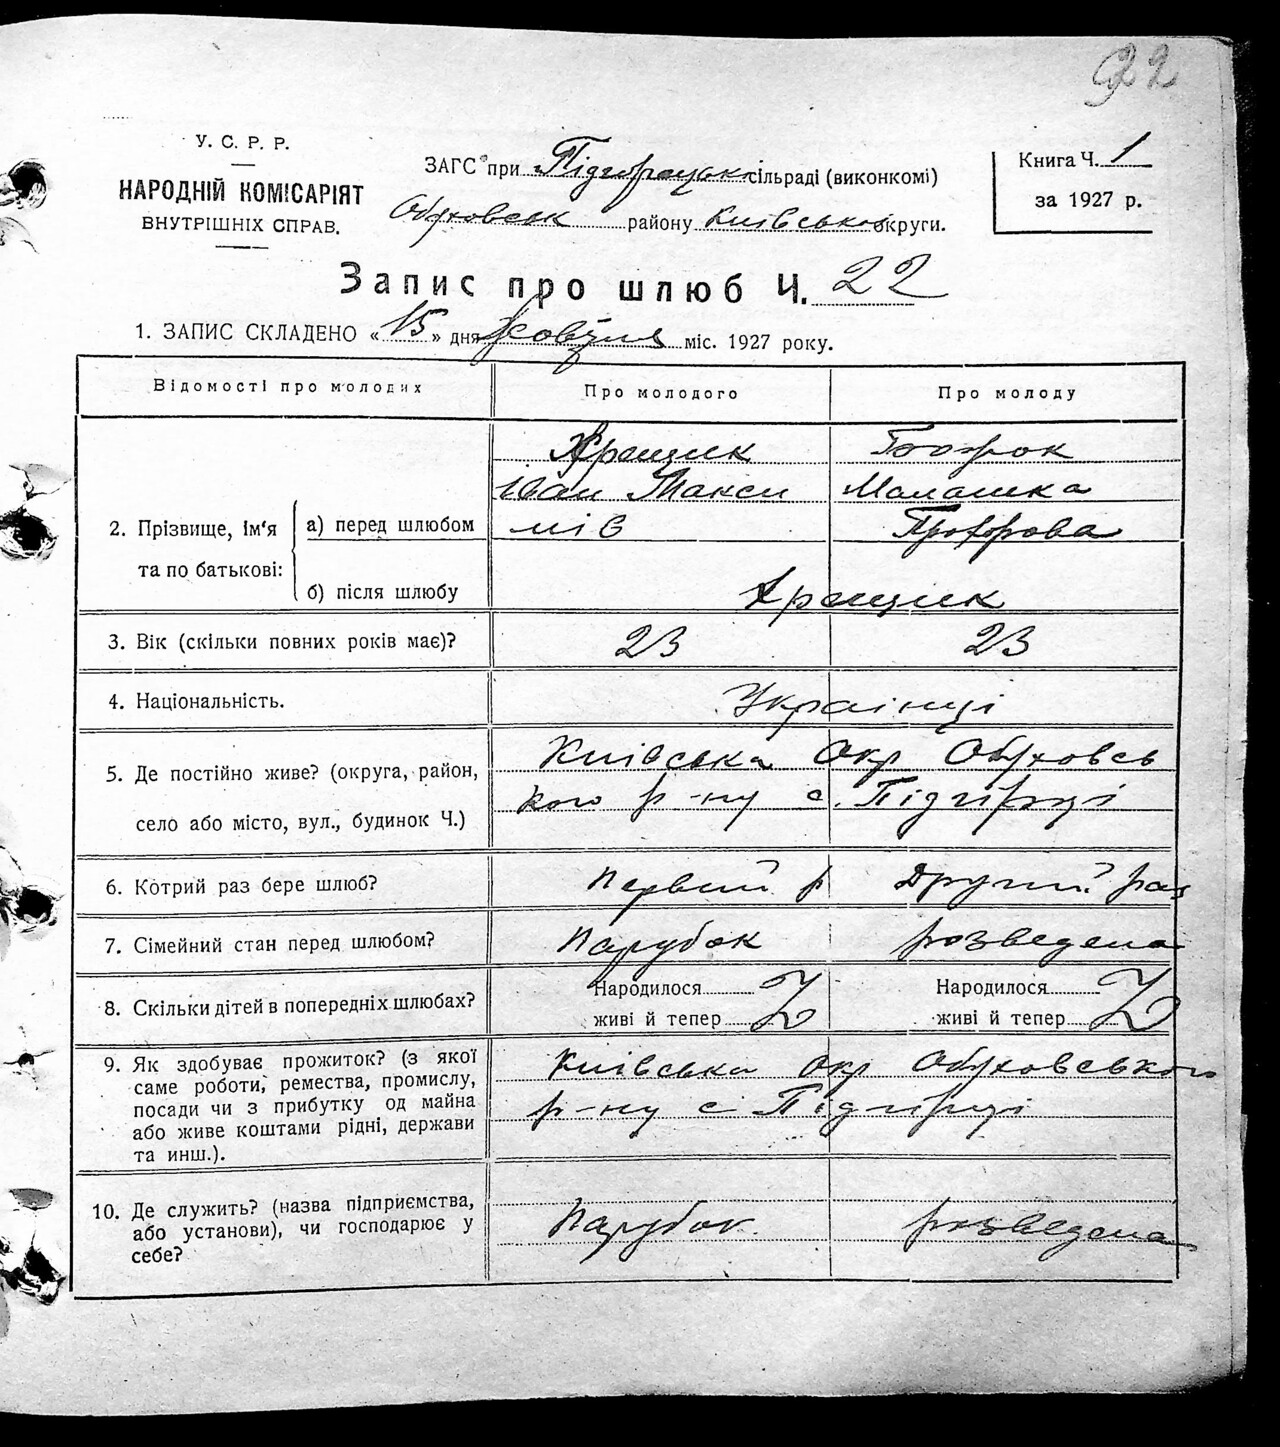 22
У. С. Р. Р.
НАРОДНІЙ КОМІСАРІЯТ
ВНУТРІШНІХ СПРАВ.
ЗАГС при Підгорецьк сільраді (виконкомі)
Обуховськ району Київськ округи.
Книга Ч. 1
за 1927 р.
Запис про шлюб Ч. 22
1. ЗАПИС СКЛАДЕНО « 15 » дня Жовтня міс. 1927 року.
Відомості про молодих Про молодого Про молоду
2. Прізвище, ім'я та по батькові:
а) перед шлюбом
Хрещик
Іван Макси
мів
Малашка
Прохрова
б) після шлюбу Хрещик
3. Вік (скільки повних років має)? 23 23
4. Національність. Українці
5. Де постійно живе? (округа, район,
село або місто, вул., будинок Ч.)
Київська Окр Обуховсь
кого р-ну с. Підгірці
6. Котрий раз бере шлюб? Первий р Другий раз
7. Сімейний стан перед шлюбом? Парубок розведена
8. Скільки дітей в попередніх шлюбах?
Народилося Народилося
живі й тепер живі й тепер
9. Як здобуває прожиток? (з якої
саме роботи, ремества, промислу,
посади чи з прибутку од майна
або живе коштами рідні, держави
та инш.).
Київська окр Обуховського
р-ну с Підгірці
10. Де служить? (назва підприємства,
або установи), чи господарює у
себе?
Парубок. розведена